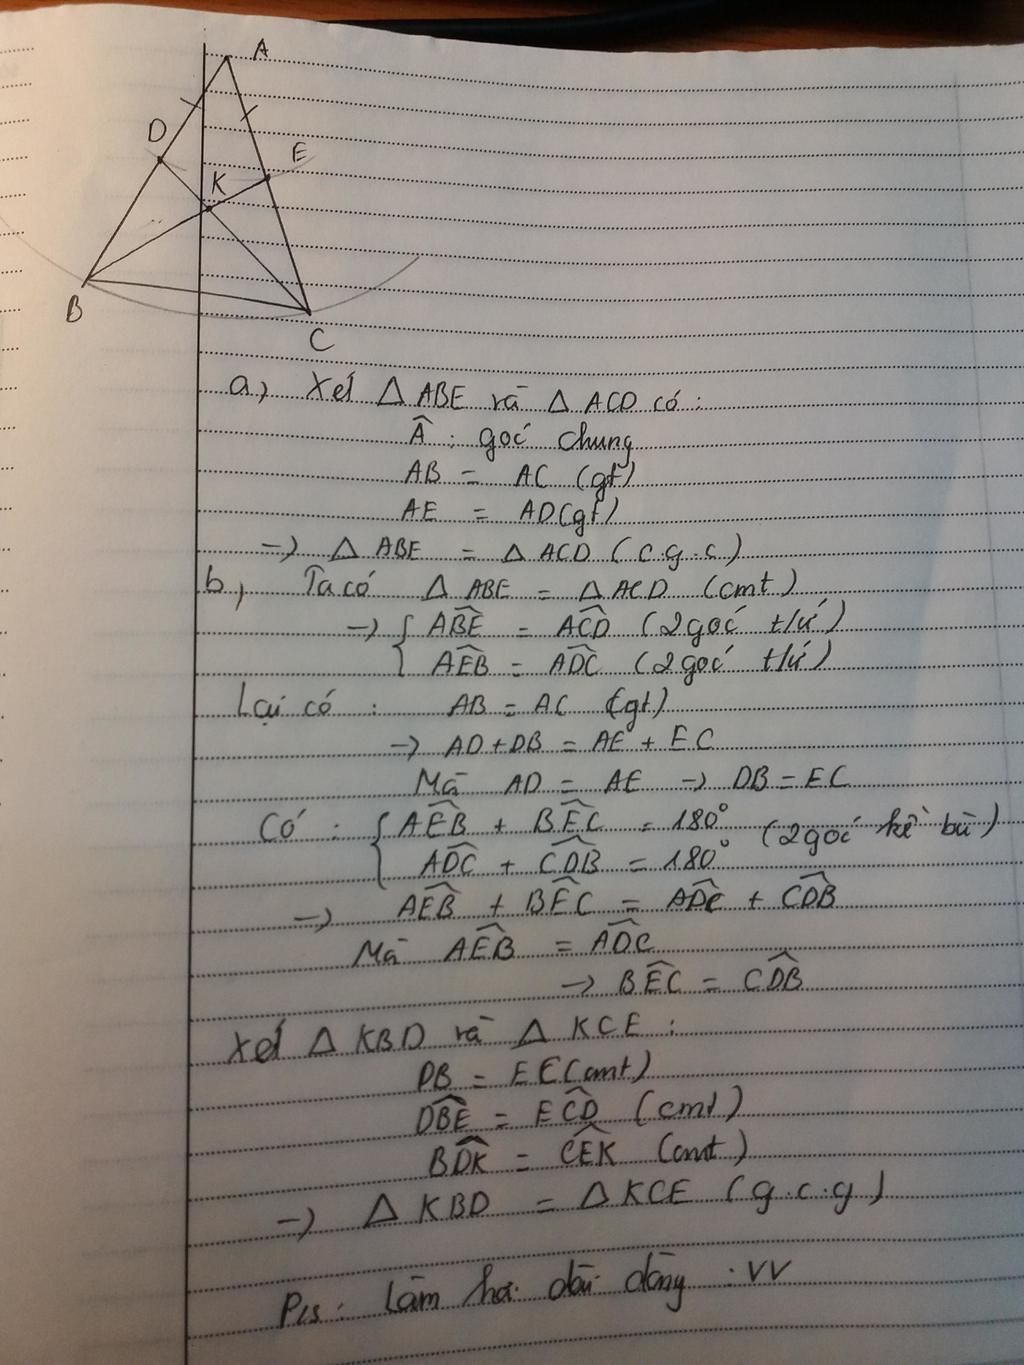 A
D
E
K
B
C
a, Xét Δ ABE và Δ ACD có:
Â : góc chung
AB = AC (gt)
AE = AD (gt)
→ Δ ABE = Δ ACD (c.g.c)
b, Ta có Δ ABE = Δ ACD (cmt)
→ { AB̂E = AĈD (2 góc t/ứ)
{ AÊB = AD̂C (2 góc t/ứ)
Lại có : AB = AC (gt)
→ AD + DB = AE + EC
Mà AD = AE → DB = EC
Có : { AÊB + BÊC = 180° (2 góc kề bù)
{ AD̂C + CD̂B = 180°
→ AÊB + BÊC = AD̂C + CD̂B
Mà AÊB = AD̂C
→ BÊC = CD̂B
Xét Δ KBD và Δ KCE :
DB = EC (cmt)
DB̂E = EĈD (cmt)
BD̂K = CÊK (cmt)
→ Δ KBD = Δ KCE (g.c.g)
P/s : Làm hơi dài dòng :VV